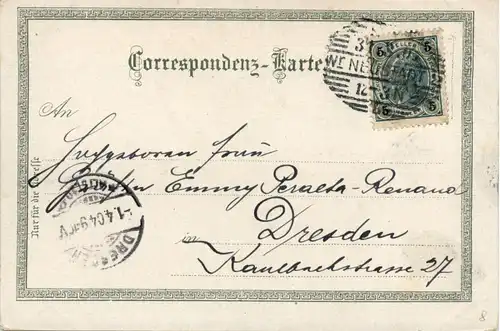 Correspondenz-Karte
5 5
WR NEUSTADT
5 5
An
Hochgeboren Frau
Gräfin Emmy Peralta-Renaud
Dresden
in Kaulbachstrasse 27
Nur für die Adresse
DRESDEN
1.4.04.
8